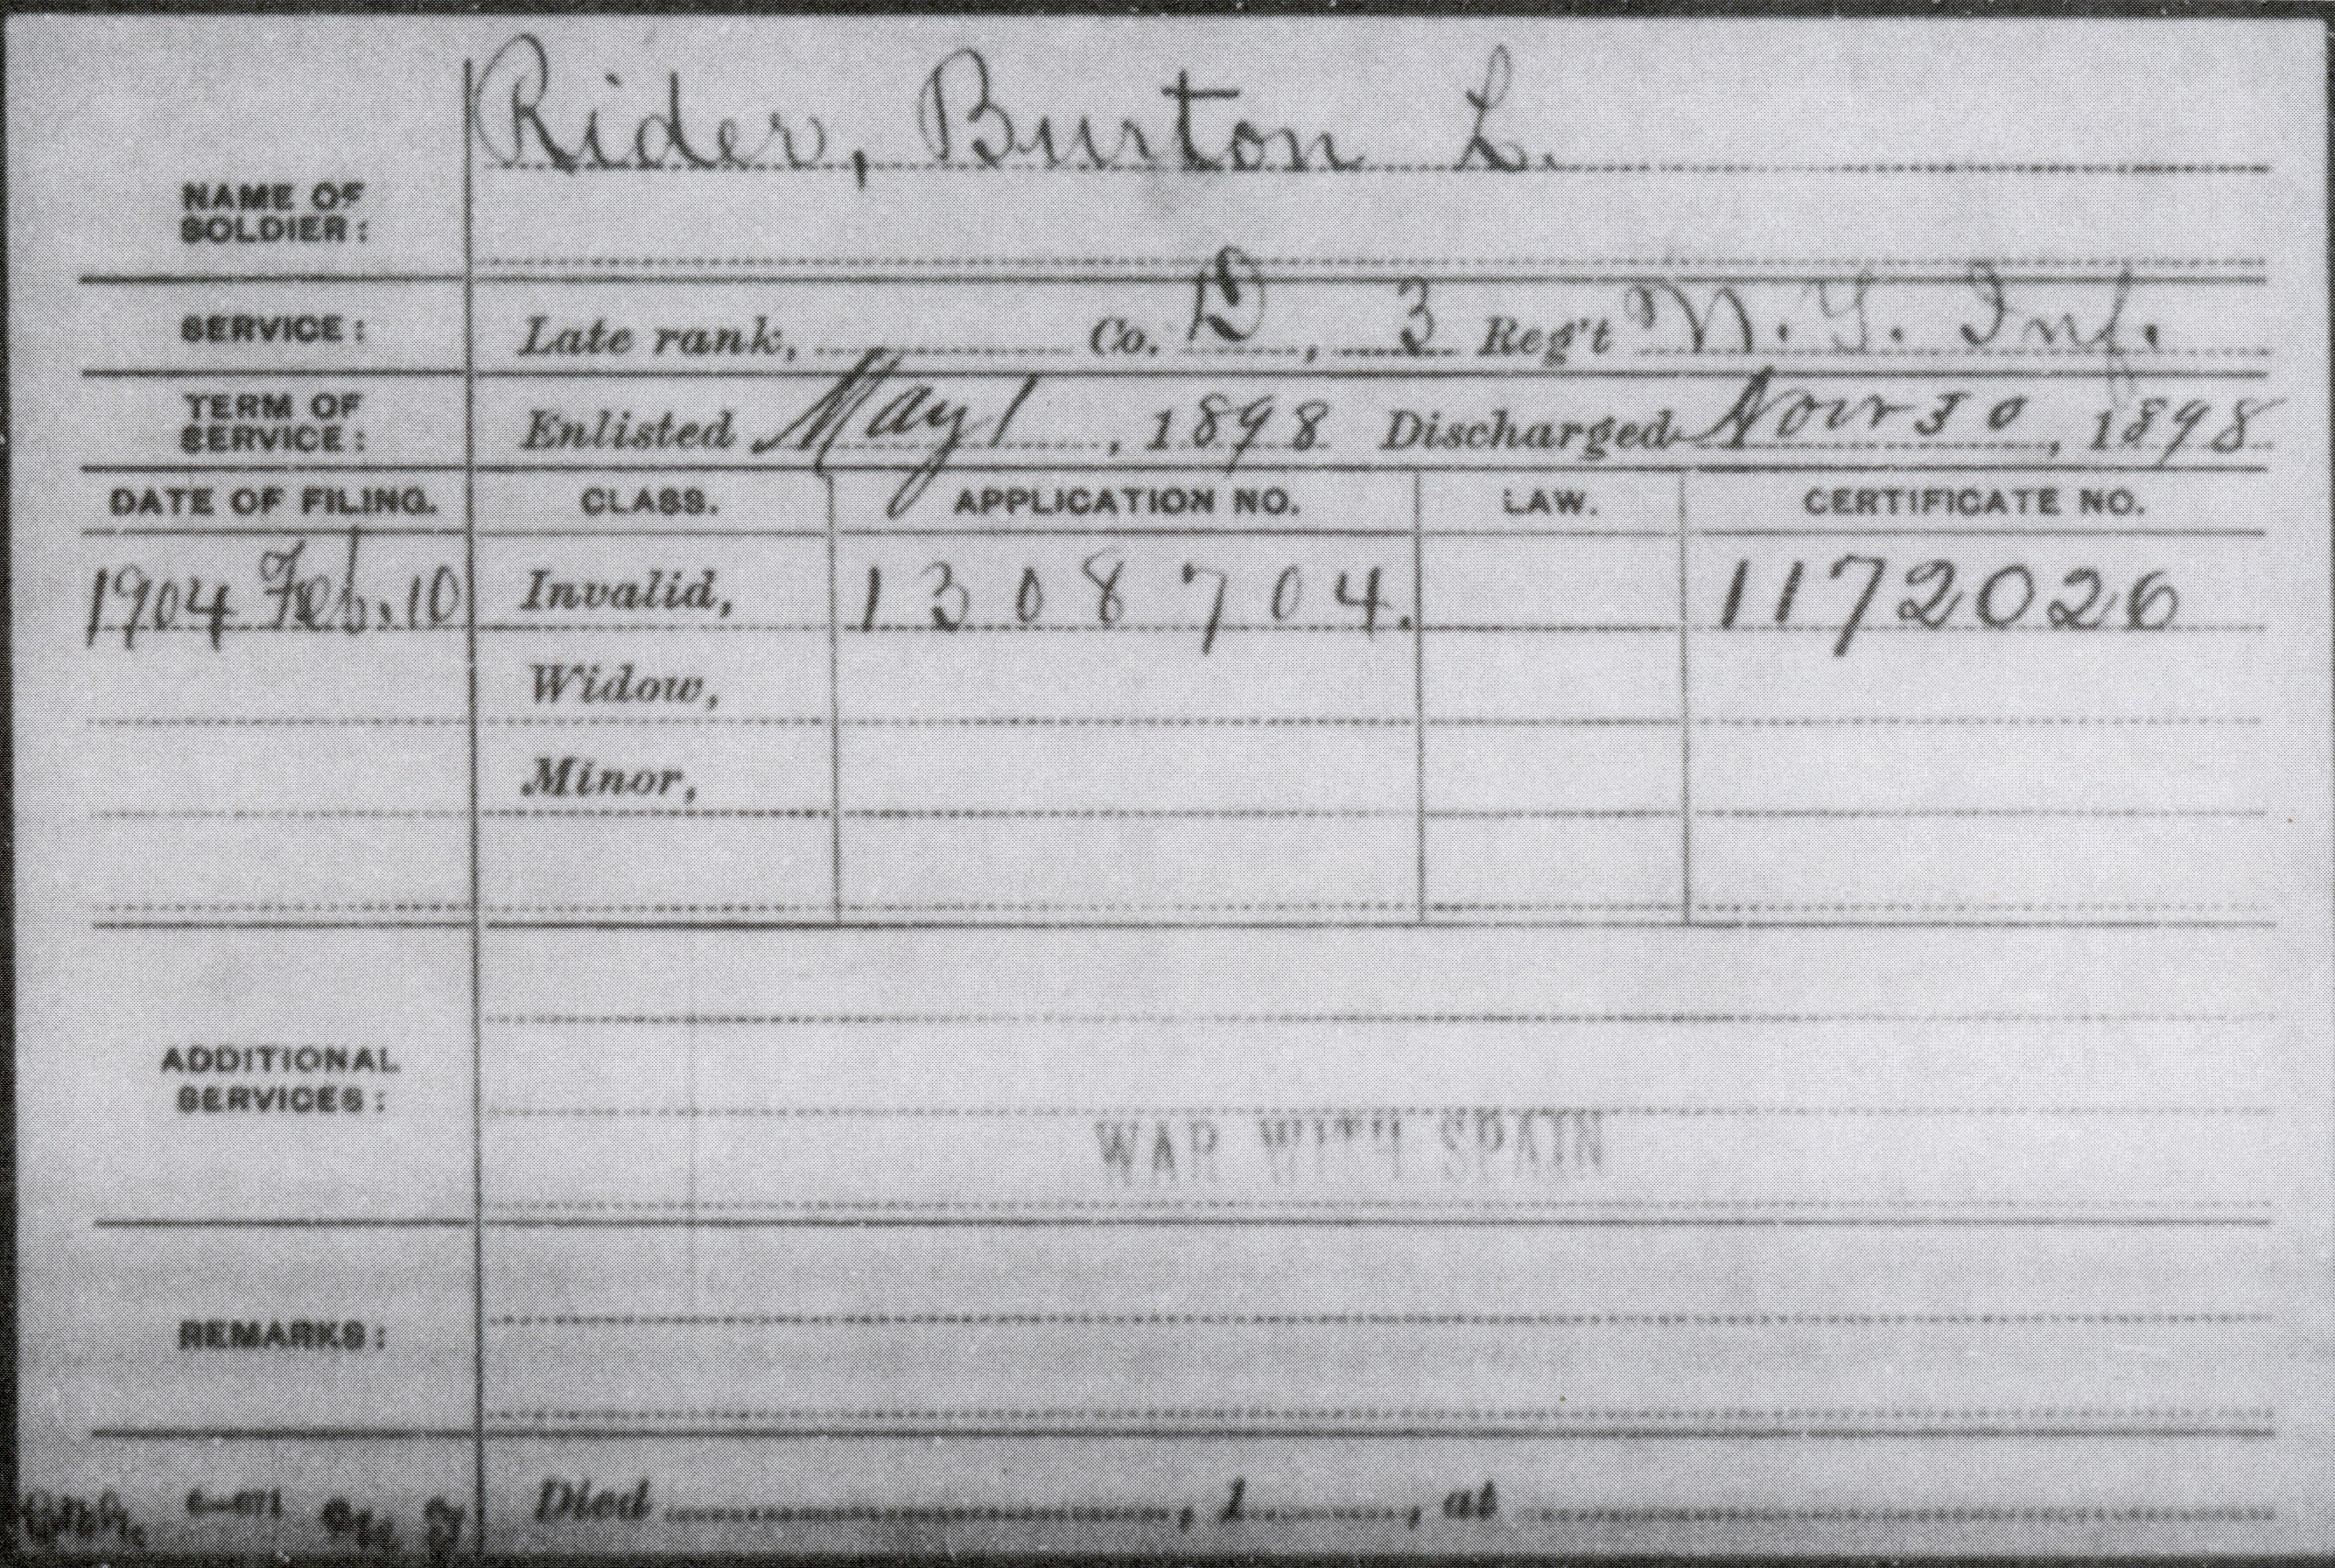 Rider, Burton L.
NAME OF
SOLDIER:
SERVICE: Late rank, Co. D, 3 Reg't N. Y. Inf.
TERM OF
SERVICE: Enlisted May 1, 1898 Discharged Nov 30, 1898
DATE OF FILING. CLASS. APPLICATION NO. LAW. CERTIFICATE NO.
1904 Feb. 10 Invalid, 1308704. 1172026
Widow,
Minor,
ADDITIONAL
SERVICES:
WAR WITH SPAIN
REMARKS:
Died , 1 , at